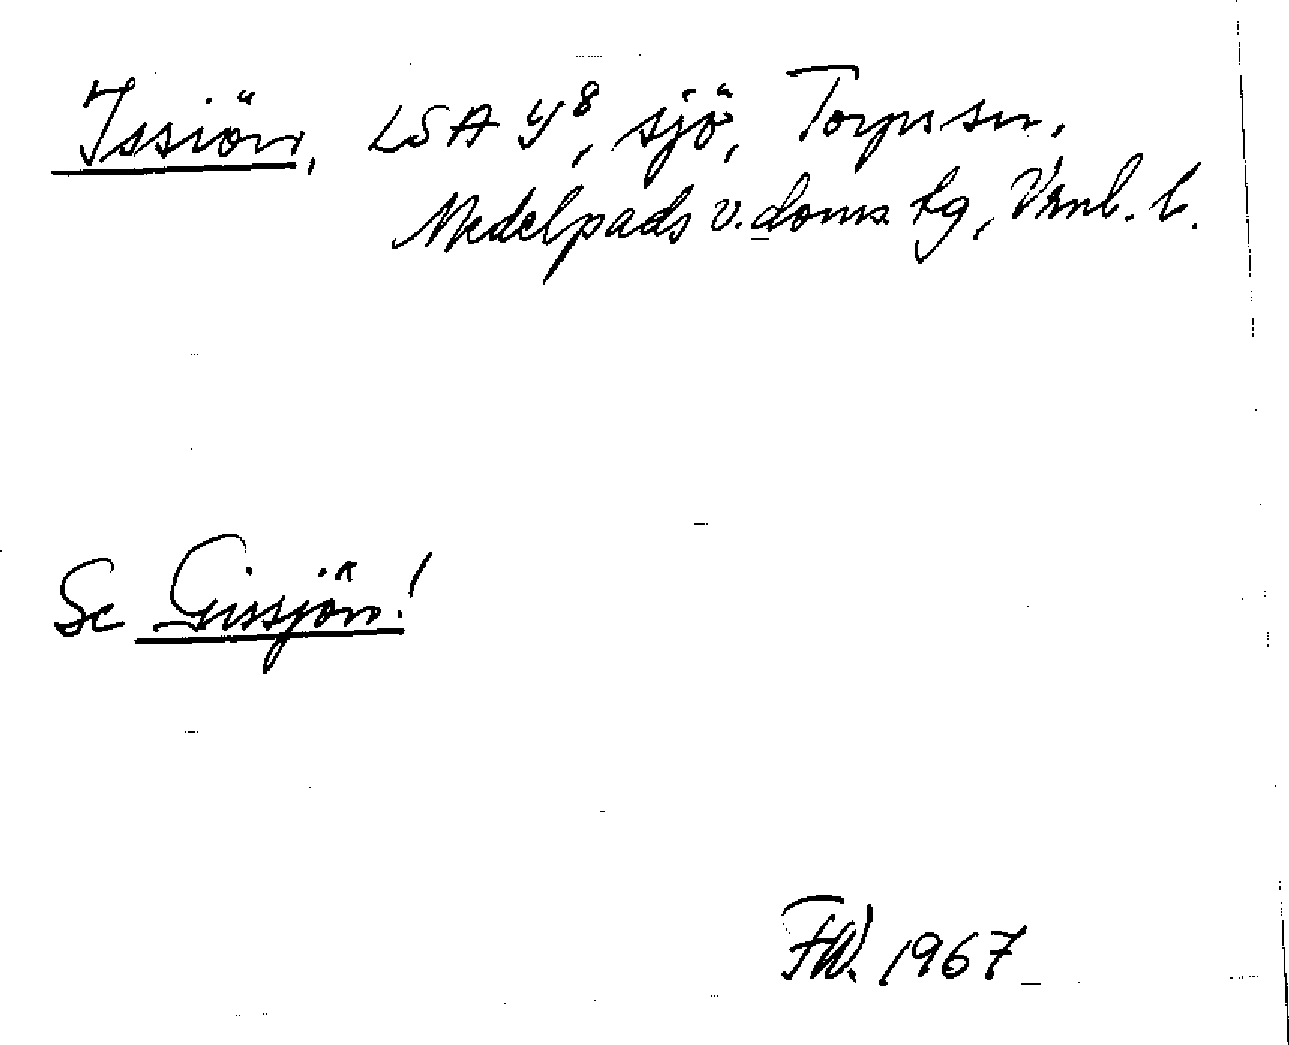 Issiön, LSA Y8, sjö, Torps sn,
Medelpads v. doms tg, Vrnl. l.
Se Gissjön!
FW. 1967